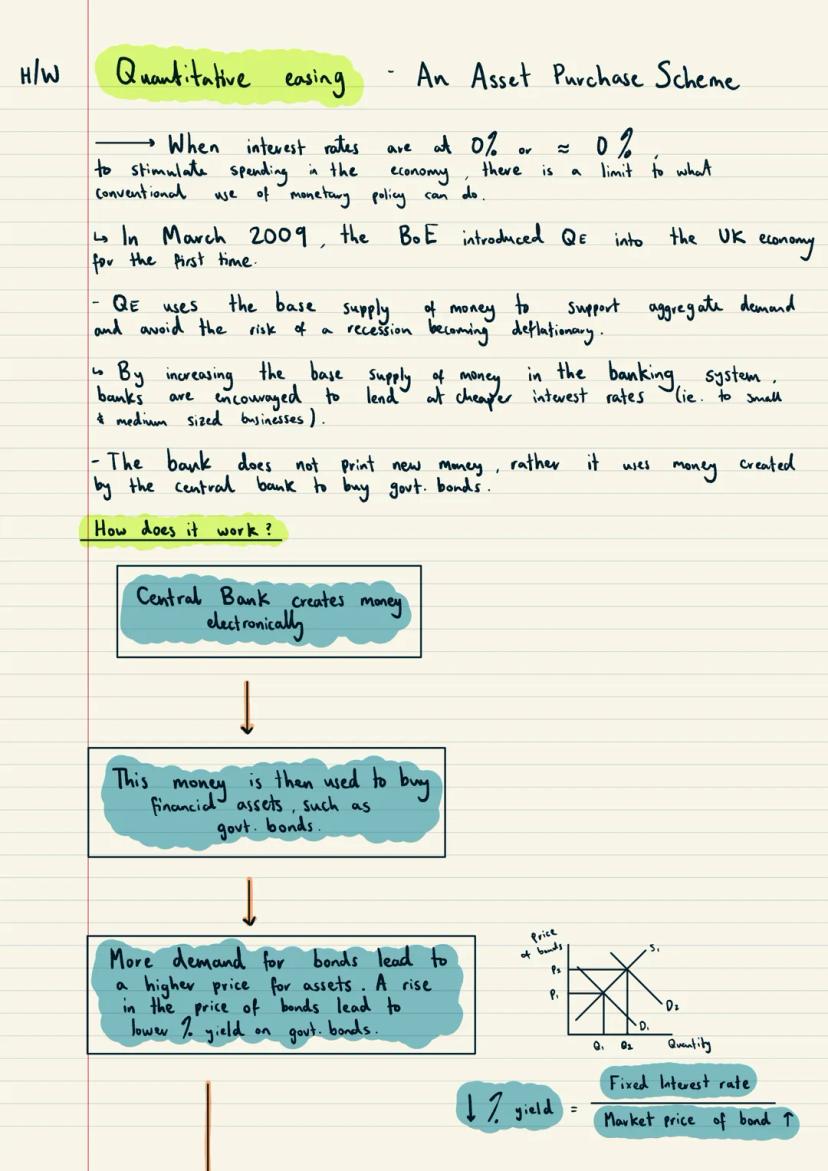 H/W Quantitative easing - An Asset Purchase Scheme
→ When interest rates are at 0% or ≈ 0%,
to stimulate spending in the economy, there is a limit to what
conventional use of monetary policy can do.
↳ In March 2009, the BoE introduced QE into the UK economy
for the first time.
- QE uses the base supply of money to support aggregate demand
and avoid the risk of a recession becoming deflationary.
↳ By increasing the base supply of money in the banking system,
banks are encouraged to lend at cheaper interest rates (ie. to small
& medium sized businesses).
- The bank does not print new money, rather it uses money created
by the central bank to buy govt. bonds.
How does it work?
Central Bank creates money
electronically
This money is then used to buy
financial assets, such as
govt. bonds.
More demand for bonds lead to
a higher price for assets. A rise
in the price of bonds lead to
lower % yield on govt. bonds.
Price
of bonds
S₁
P₂
P₁
D₂
D₁
Q₁ Q₂ Quantity
↓ % yield = Fixed Interest rate
Market price of bond ↑